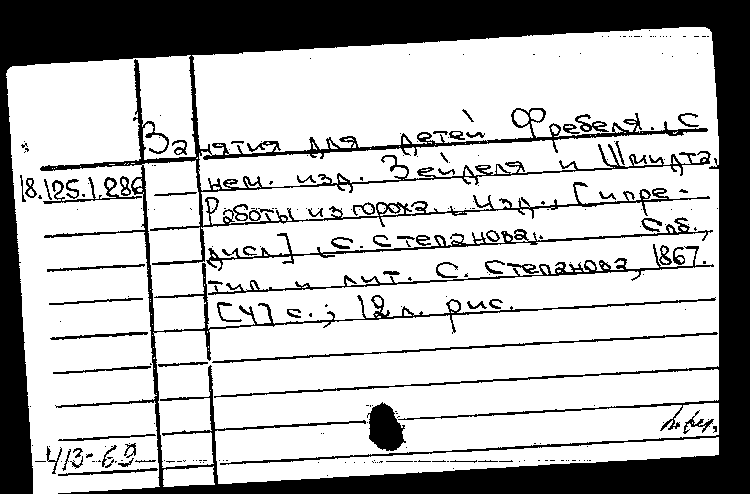 Занятия для детей Фребеля. С
18.125.1.286
нем. изд. Зейделя и Шмидта.
Работы из гороха. Изд., [и пре-
дисл.] С. Степанова. Спб.,
тип. и лит. С. Степанова, 1867.
[4] с.; 12 л. рис.
413-69